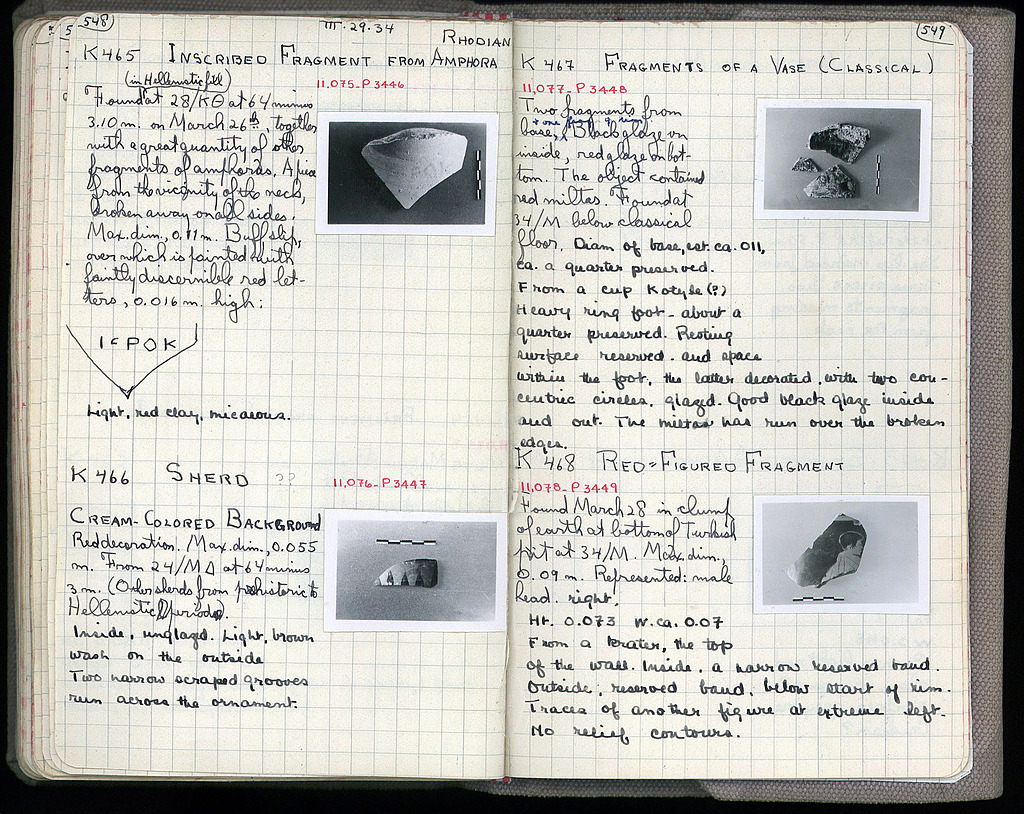 548
III·29·34
K465 INSCRIBED FRAGMENT FROM RHODIAN AMPHORA
(in Hellenistic fill)
11,075-P3446
Found at 28/ΚΘ at 64 minus
3.10 m. on March 26th, together
with a great quantity of other
fragments of amphoras. A piece
from the vicinity of the neck,
broken away on all sides.
Max. dim., 0.11 m. Buff slip,
over which is painted with
faintly discernible red let-
ters, 0.016 m. high:
ΙϹΡΟΚ
Light, red clay, micaeous.
K466 SHERD ??
11,076-P3447
CREAM-COLORED BACKGROUND
Red decoration. Max. dim., 0.055
m. From 24/ΜΔ at 64 minus
3 m. (Other sherds from prehistoric to
Hellenistic periods).
Inside, unglazed. Light, brown
wash on the outside
Two narrow scraped grooves
run across the ornament.
549
K467 FRAGMENTS OF A VASE (CLASSICAL)
11,077-P3448
Two fragments from
+ one frag. of rim
base, Black glaze on
inside, red glaze on bot-
tom. The object contained
red miltos. Found at
34/Μ below classical
floor. Diam of base, est. ca. 011,
ca. a quarter preserved.
From a cup Kotyle(?)
Heavy ring foot - about a
quarter preserved. Resting
surface reserved. and space
within the foot, the latter decorated, with two con-
centric circles, glazed. Good black glaze inside
and out. The miltos has run over the broken
edges.
K468 RED=FIGURED FRAGMENT
11,078-P3449
Found March 28 in clump
of earth at bottom of Turkish
pit at 34/Μ. Max. dim.,
0.09 m. Represented: male
head. right.
Ht. 0.073 W. ca. 0.07
From a krater, the top
of the wall. Inside, a narrow reserved band.
Outside, reserved band, below start of rim.
Traces of another figure at extreme left.
No relief contours.